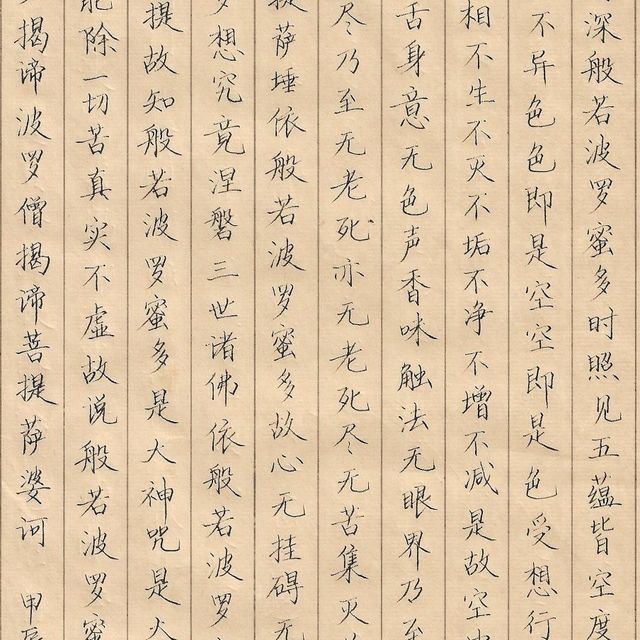 深般若波罗蜜多时照见五蕴皆空度
不异色色即是空空即是色受想行
相不生不灭不垢不净不增不减是故空中
舌身意无色声香味触法无眼界乃至
尽乃至无老死亦无老死尽无苦集灭
提萨埵依般若波罗蜜多故心无挂碍无
梦想究竟涅磐三世诸佛依般若波罗
提故知般若波罗蜜多是大神咒是大
能除一切苦真实不虚故说般若波罗蜜
揭谛波罗僧揭谛菩提萨婆诃 甲辰